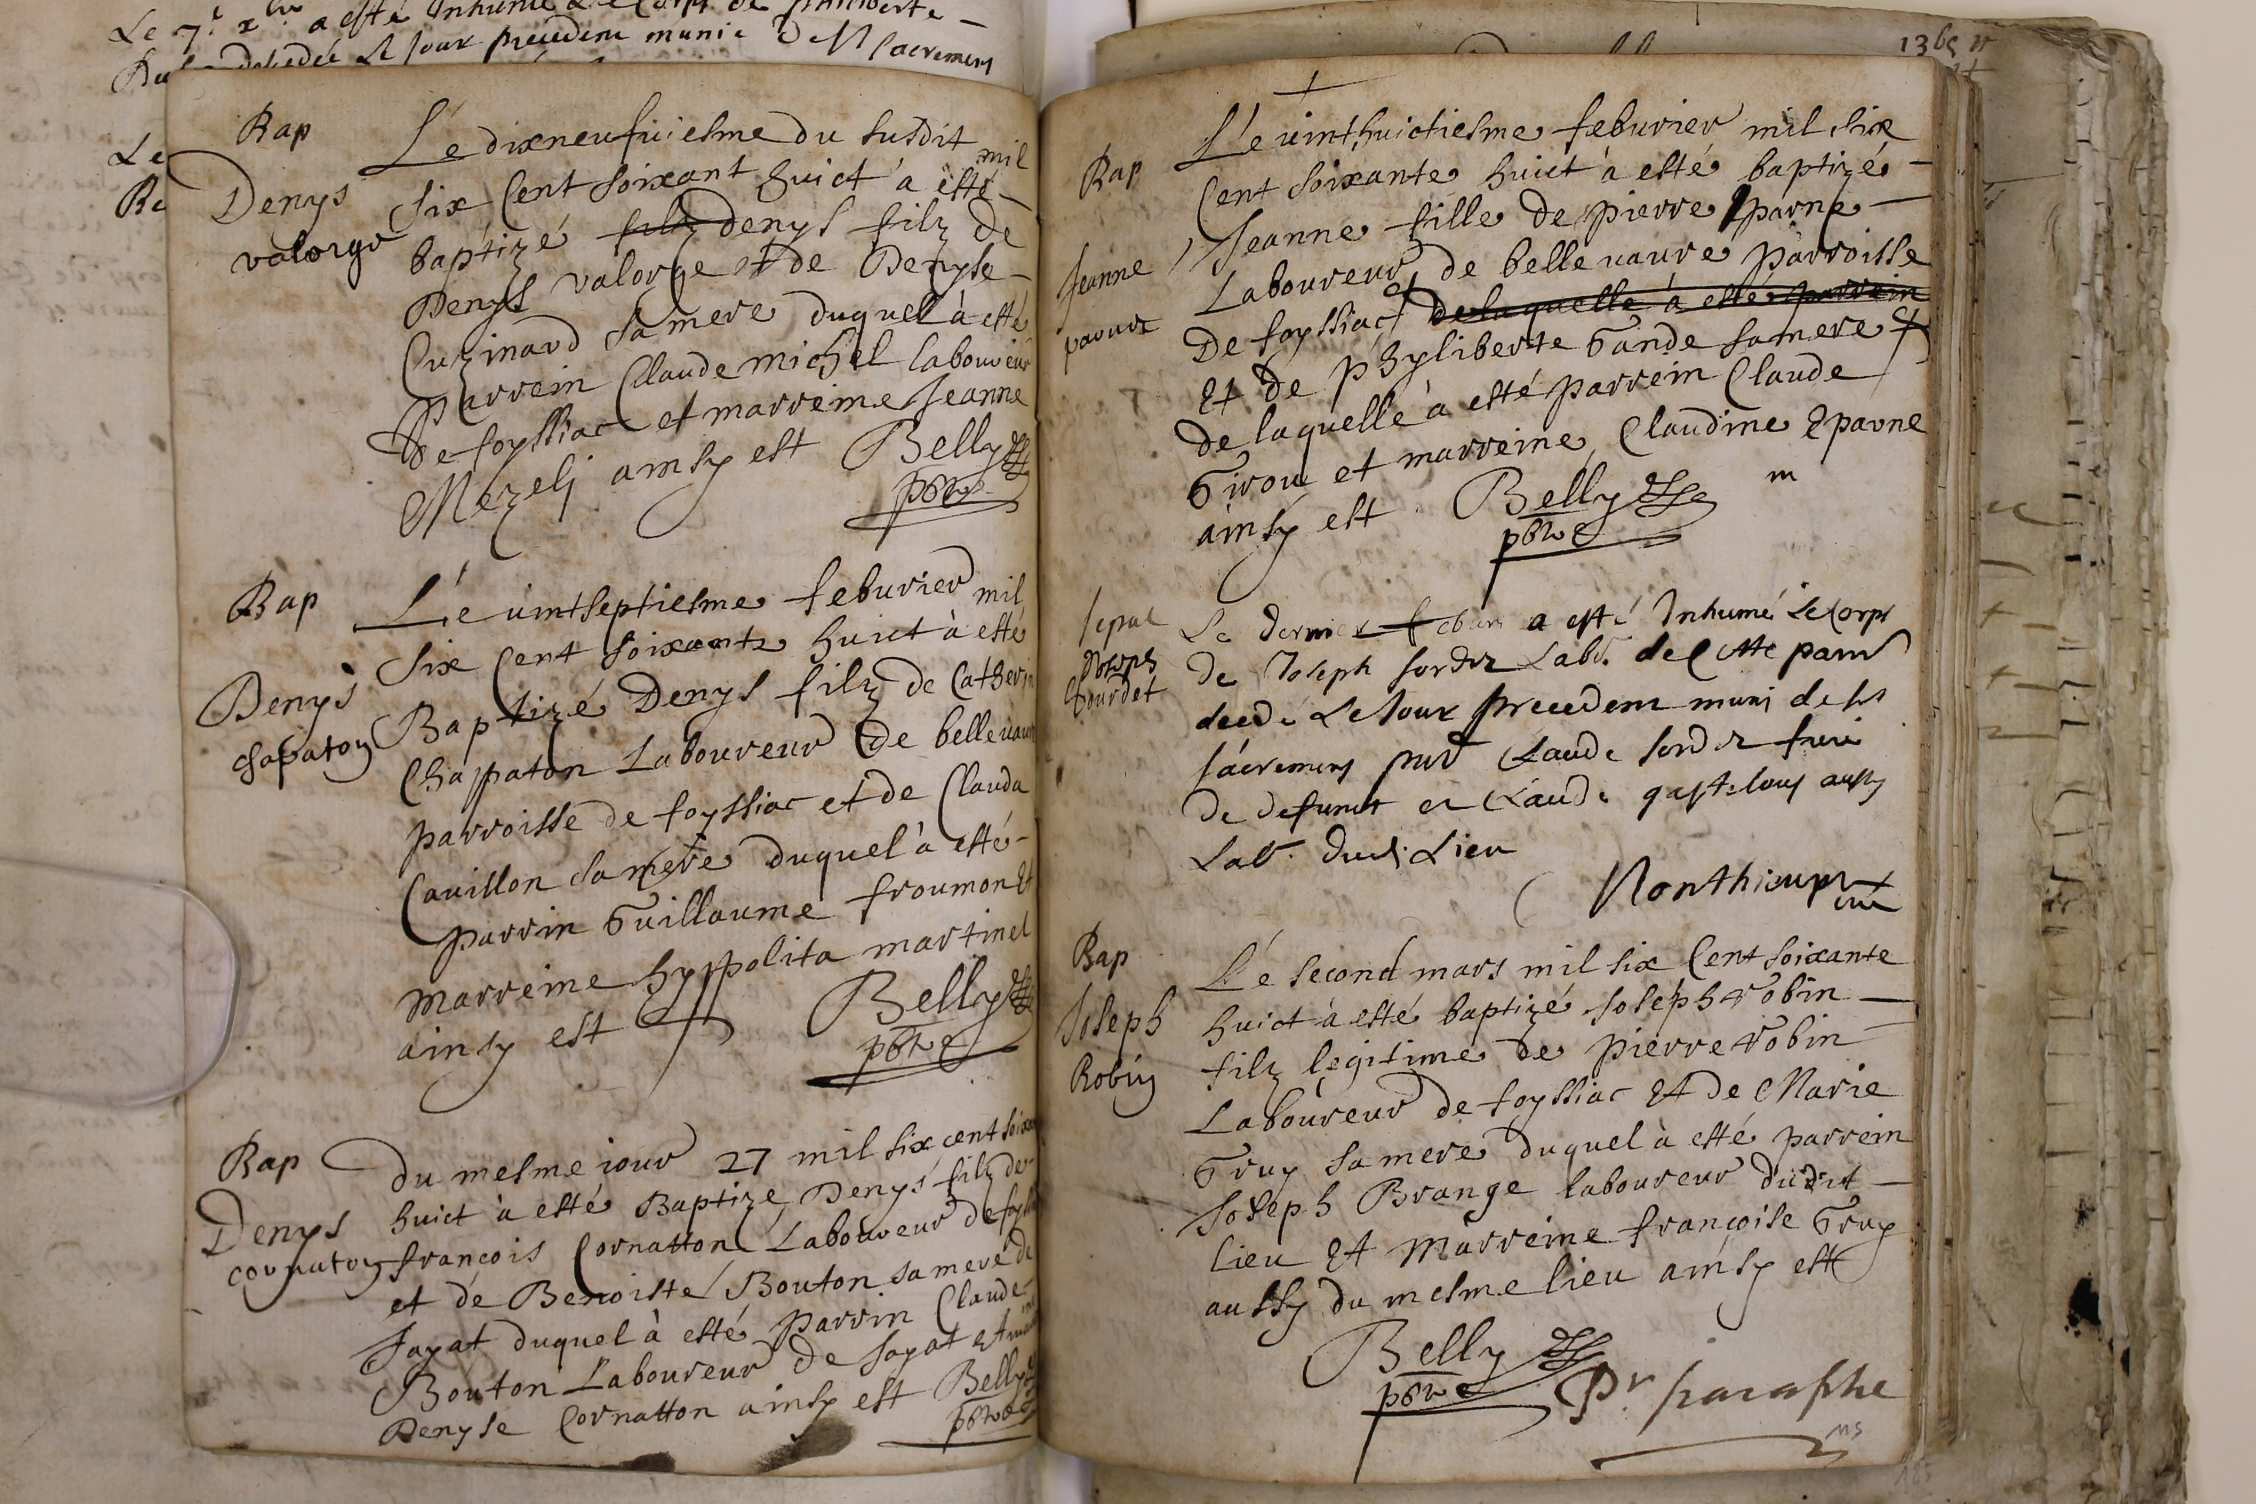 Le 7.e xbre a esté Inhumé Le Corps de philiberte
decedée Le Jour precedent munie des Sacremens
Le
Bap
Denys
valorge
Le dixneufuiesme du susdit mil
six Cent soixant huict à esté
baptizé filz denys filz de
Denys valorge et de Denyse
Cuzinard sa mere duquel à esté
parrein Claude michel laboureur
de foyssiac et marreine Jeanne
Mezelj ainsy est Belly
pbre
Bap
Denys
chapaton
Le uintseptiesme feburier mil
six Cent soixante huict à esté
Baptizé Denys filz de Catherin
Chappaton Laboureur de belleuaure
parroisse de foyssiac et de Clauda
Cauillon sa mere duquel à esté
parrin Guillaume froumon et
marreine hyppolita martinet
ainsy est Belly
pbre
Bap
Denys
cornaton
du mesme iour 27 mil six cent soixan
huict à esté Baptize Denys filz de
françois Cornatton Laboureur de foyssi
et de Benoisté Bouton sa mere de
Jayat duquel à esté parrin Claude
Bouton Laboureur de Jayat et
Denyse Cornatton ainsy est Belly
pbre
13
Bap
Jeanne
parne
Le uinthuictiesme feburier mil six
Cent soixante huict à esté baptizé
Jeanne fille de pierre Eparne
Laboureur de belleuaure parroisse
De foyssiac et de laquelle à esté parrein
et de phyliberte Gande sa mere et
de laquelle à esté parrein Claude
Girou et marreine Claudine Eparne
ainsy est Belly
pbre
sepul
Joseph
Gourdet
Le dernier feburier a esté Inhumé Le Corps
de Joseph Labr. de Cette parr
decedé Le Jour precedent muni de ses
sacremens pnt Claude frere
de defunct et Claude aussy
Labr. dud. Lieu
Monthieupt
curé
Bap
Joseph
Robin
Le second mars mil six Cent soixante
huict à esté baptizé Joseph robin
filz legitime de pierre robin
Laboureur de foyssiac Et de Marie
Gruy sa mere duquel à esté parrein
Joseph Brange laboureur dudit
lieu Et Marreine françoise Gruy
aussy du mesme lieu ainsy est
Belly
pbre
Pr. paraphe